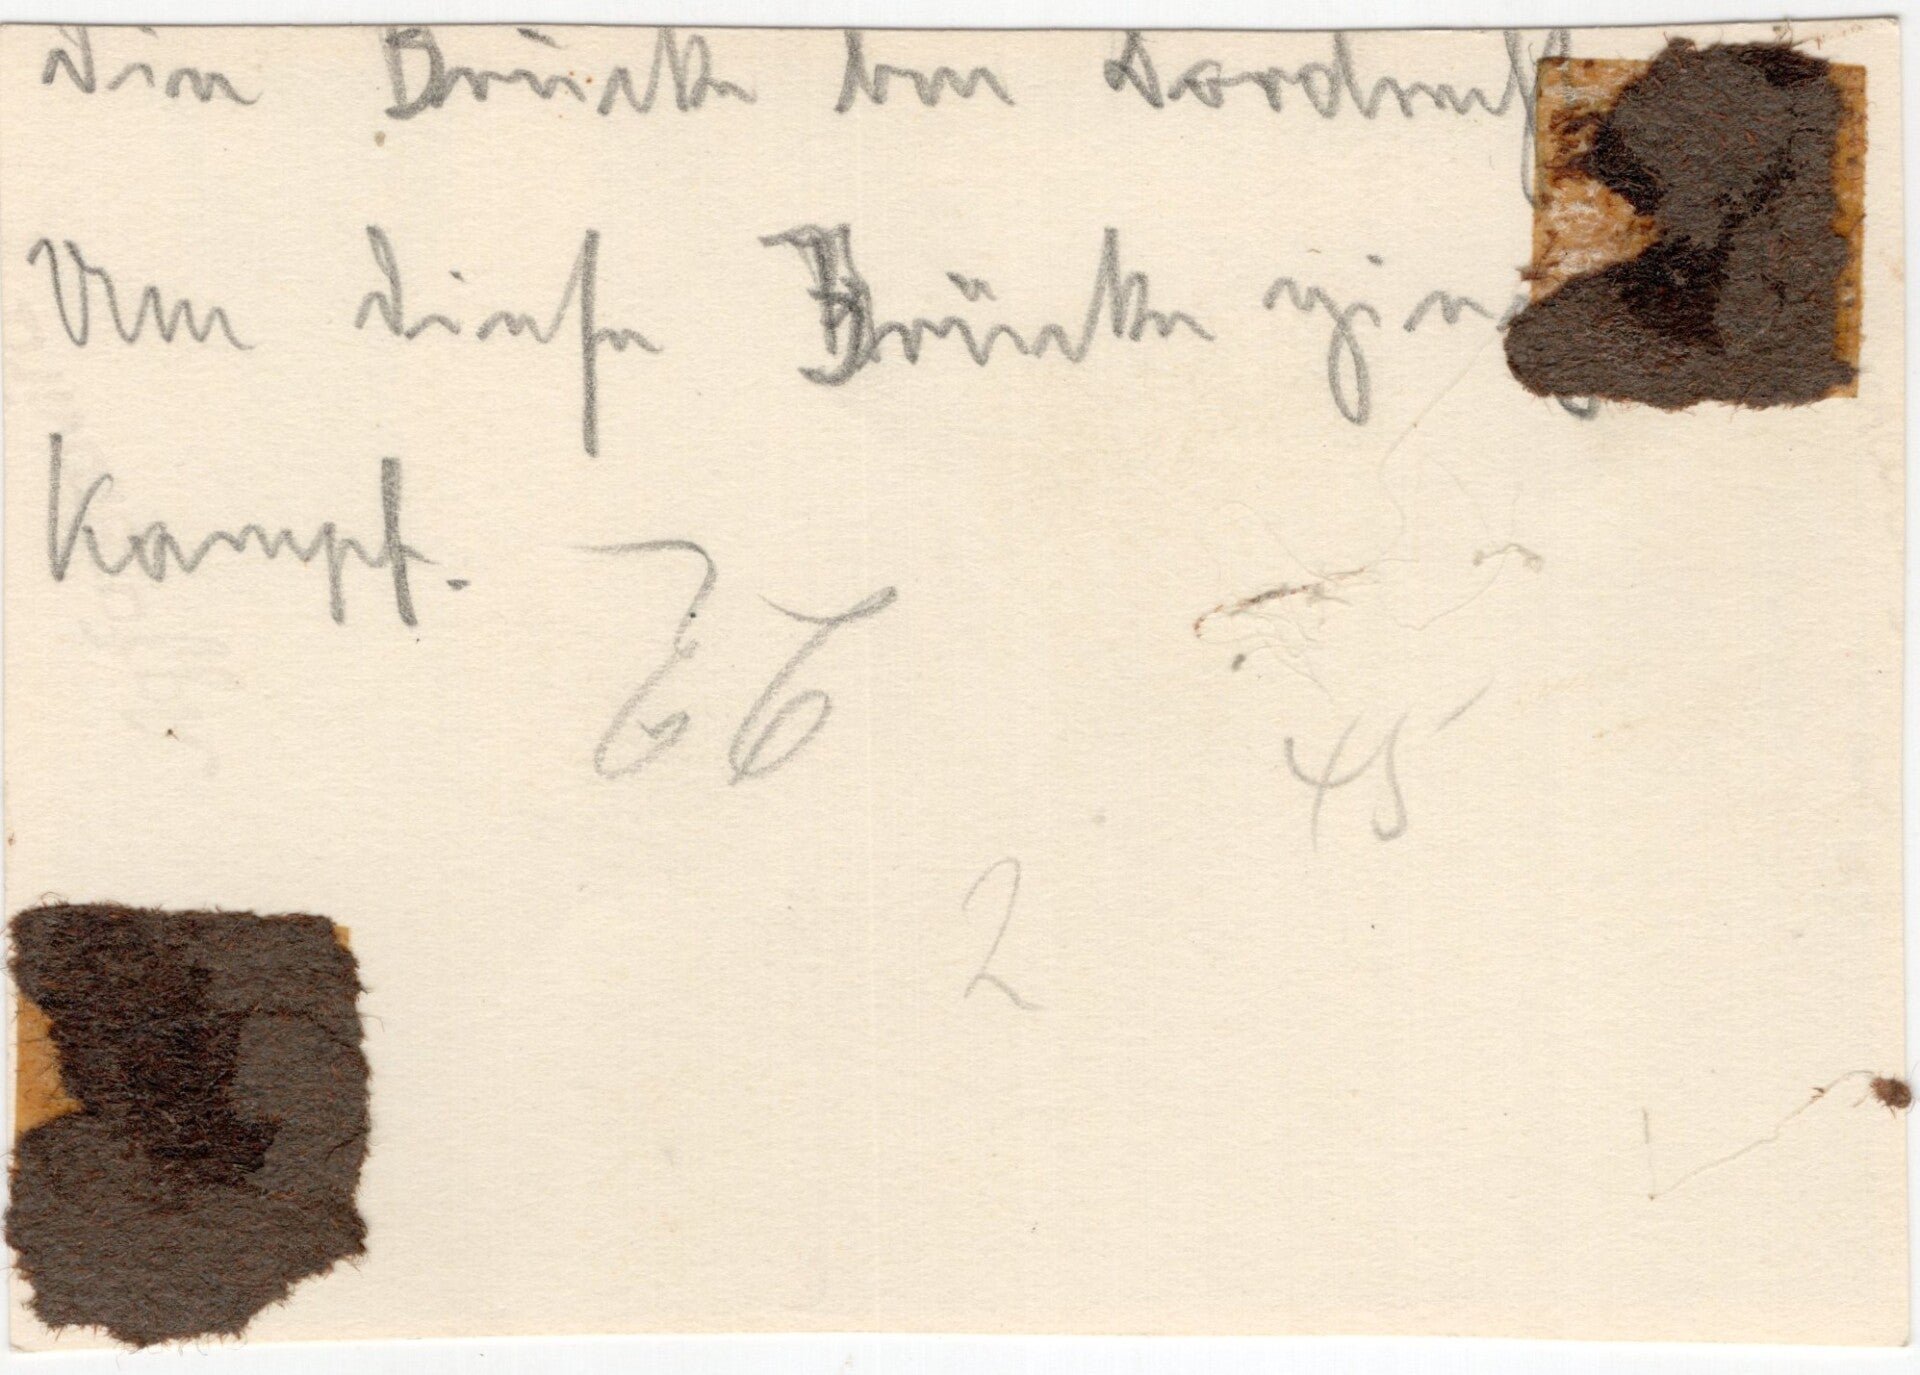 Die Brücke von Dordrecht
Um diese Brücke ging
Kampf.
76
45
2